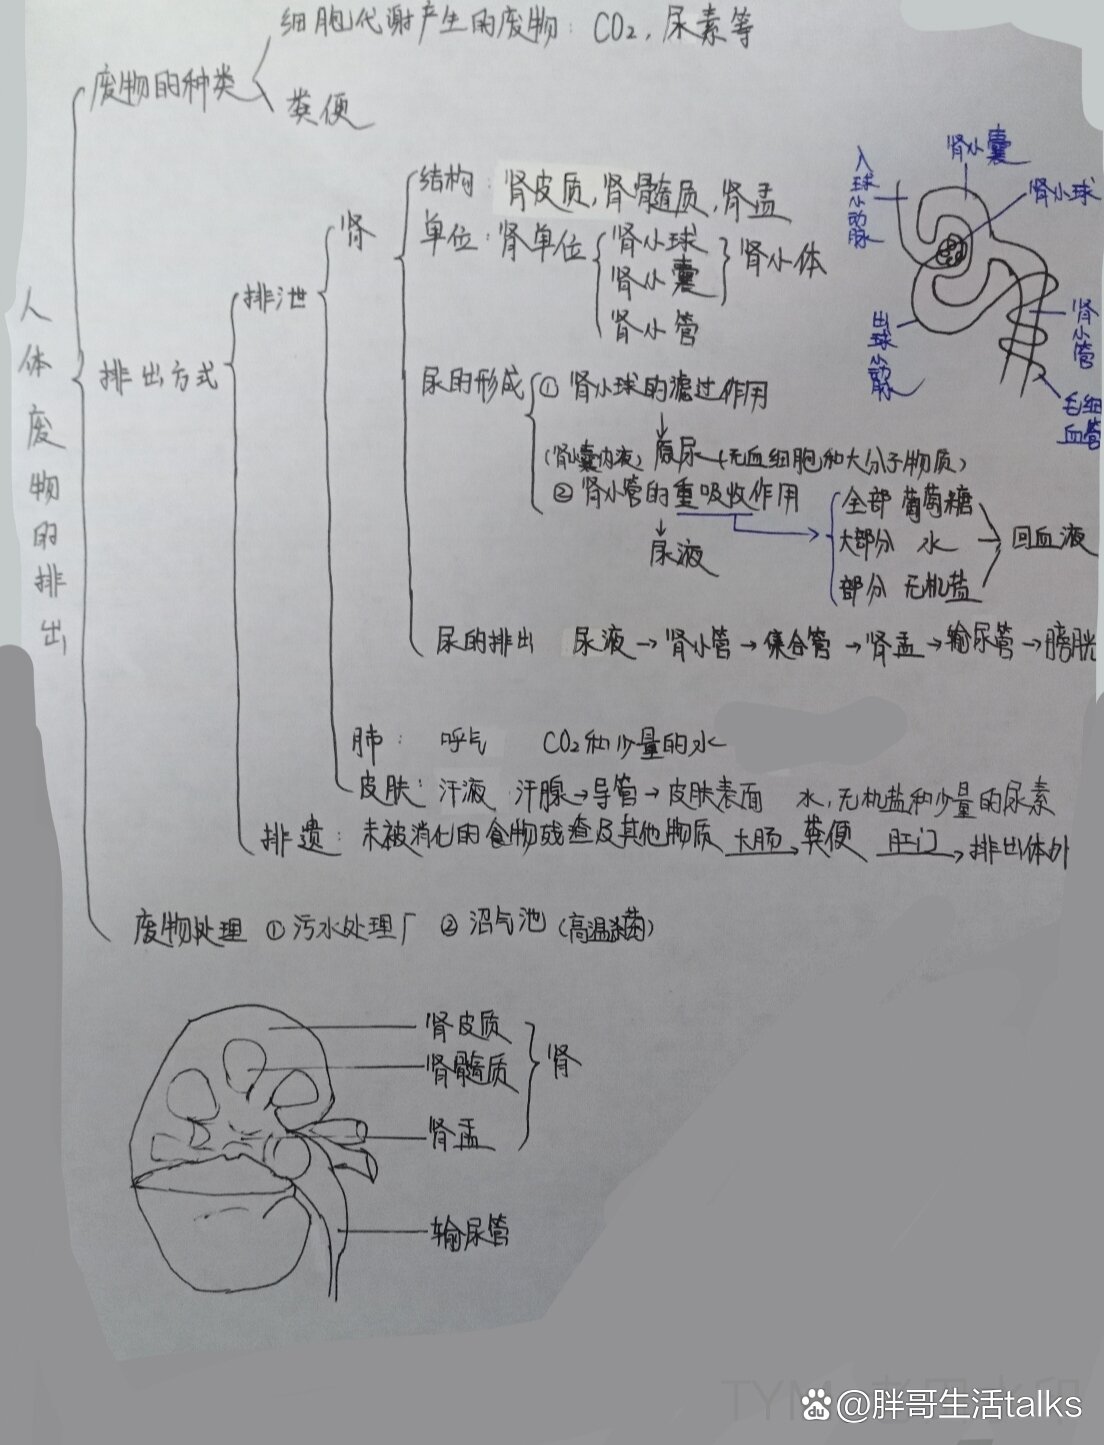 细胞代谢产生的废物：CO₂，尿素等
废物的种类
粪便
人体废物的排出
排出方式
排泄
肾
结构：肾皮质，肾髓质，肾盂
单位：肾单位
肾小球
肾小囊
肾小体
肾小管
尿的形成
① 肾小球的滤过作用
↓
(肾小囊内液) 原尿 (无血细胞和大分子物质)
② 肾小管的重吸收作用
↓
尿液
全部 葡萄糖
大部分 水
部分 无机盐
回血液
尿的排出 尿液→肾小管→集合管→肾盂→输尿管→膀胱
肺： 呼气 CO₂和少量的水
皮肤：汗液 汗腺→导管→皮肤表面 水，无机盐和少量的尿素
排遗：未被消化的食物残渣及其他物质 大肠→ 粪便 肛门→ 排出体外
废物处理 ①污水处理厂 ②沼气池 (高温杀菌)
入球小动脉
肾小囊
肾小球
出球小动脉
肾小管
毛细血管
肾皮质
肾髓质
肾盂
肾
输尿管
@胖哥生活talks